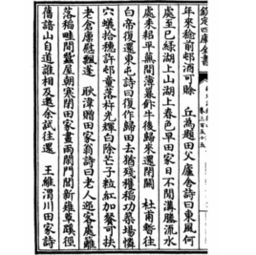 欽定四庫全書
年來給前邨酒可賒 丘為題田父廬舍詩曰東風何
處至已綠湖上山湖上春色早田家日不閒溝塍流水
處耒耜平蕪間薄暮飰牛後歸來還閉關 杜甫暫往
白帝復還東屯詩曰復作歸田去猶殘穫稻功築場憐
穴蟻拾穗許邨童落杵光輝白除芒子粒紅加餐可扶
老倉廩慰飄蓬 耿湋贈田家翁詩曰老人迎客處籬
落稻畦間蠶屋朝寒閉田家晝雨閒門閭新薙草蹊徑
舊諳山自道誰相及邀余試往還 王維渭川田家詩